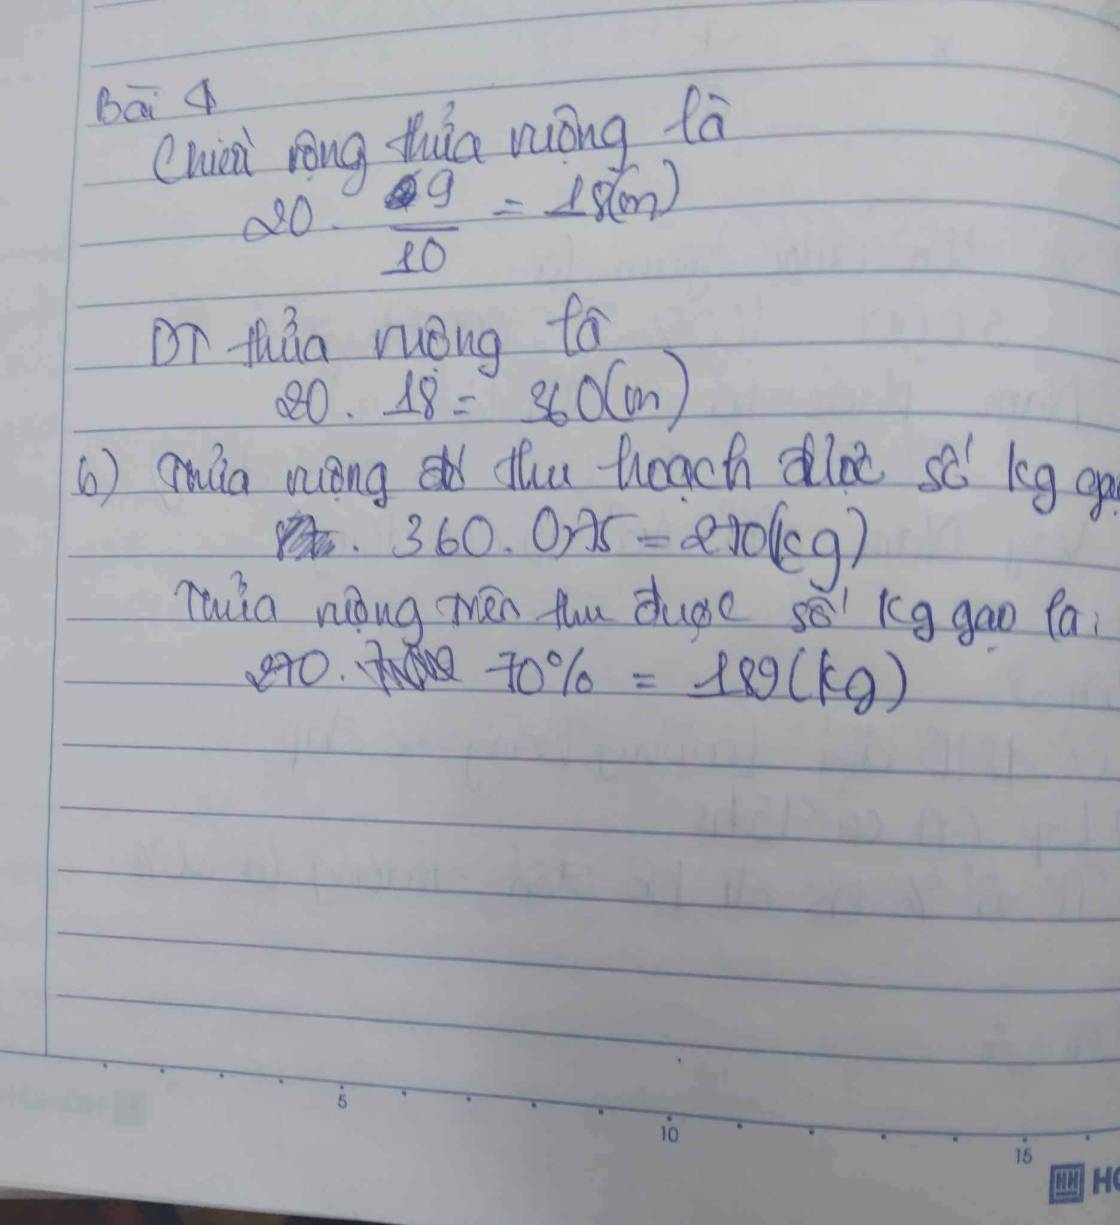 Bài 4
Chiều rộng thửa ruộng là
20 . 9/10 = 18(m)
DT thửa ruộng là
20 . 18 = 360(m)
b) Thửa ruộng đó thu hoạch được số kg
360 . 0,75 = 270(kg)
Thửa ruộng trên thu được số kg gạo là:
270 . 70% = 189(kg)
5
10
15